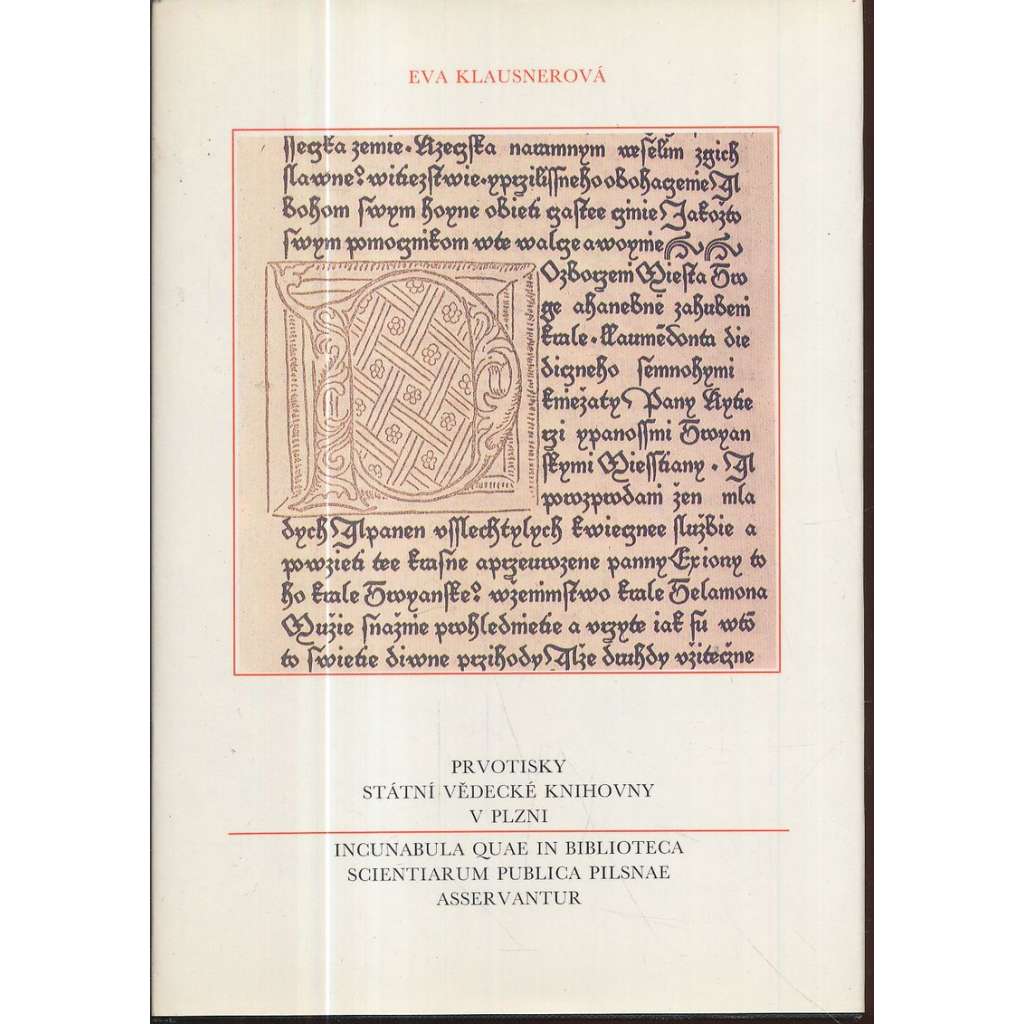 EVA KLAUSNEROVÁ
sseczka zemie. Rzeczska naramnym weselim zgich
slawne? witiezstwie. yprzilissneho obohaczenie Al
bohom swym hoyne obieti czastee czinie Jakožto
swym pomocznikom wte walcze awoynie
Ozborzeni Miesta Tro
ge ahanebné zahubeni
krale. Laumēdonta die
diczneho semnohymi
kniežaty Pany Rytie
rzi ypanossmi Troyan
skymi Miesstiany. Al
porozprodani žen mla
dych Alpanen vsslechtylych kwiecznee službie a
powzieti tee krasne aprzeurozene panny Exiony to
ho krale Troyanske? wzeninstwo krale Telamona
Mužie snažnie prohlednietie a vrzyte iak su wtō
to swietie diwne przihody Alže druhdy vžiteczne
PRVOTISKY
STÁTNÍ VĚDECKÉ KNIHOVNY
V PLZNI
INCUNABULA QUAE IN BIBLIOTECA
SCIENTIARUM PUBLICA PILSNAE
ASSERVANTUR